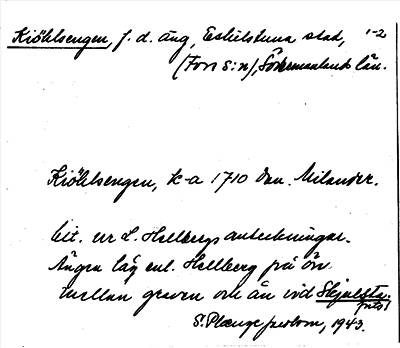 Kiöhlsengen, f. d. äng, Eskilstuna stad, 1-2
(Fors s:n), Södermanlands län.
Kiöhlsengen, k-a 1710 Dan. Milander.
Cit. ur L. Hellbergs anteckningar.
Ängen låg enl. Hellberg på ön
mellan graven och ån vid Skjulsta.
S. Plænge Jacobson, 1943.